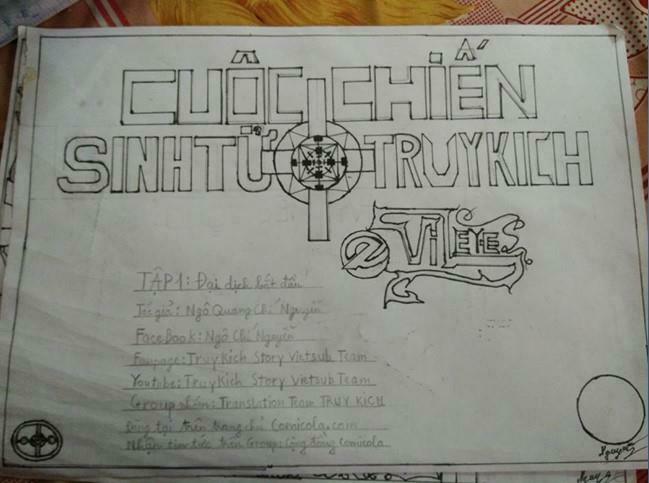 CUỘC CHIẾN
SINH TỬ TRUY KICH
EVILEYES
TẬP 1: Đại dịch bắt đầu
Tác giả: Ngô Quang Chí Nguyễn
Facebook: Ngô Chí Nguyễn
Fanpage: Truy Kich Story Vietsub Team
Youtube: Truy Kich Story Vietsub Team
Group nhóm: Translation Team TRUY KICH
Đăng tại trên trang chủ Comicola.com
Nhận tin tức trên Group: Cộng đồng Comicola